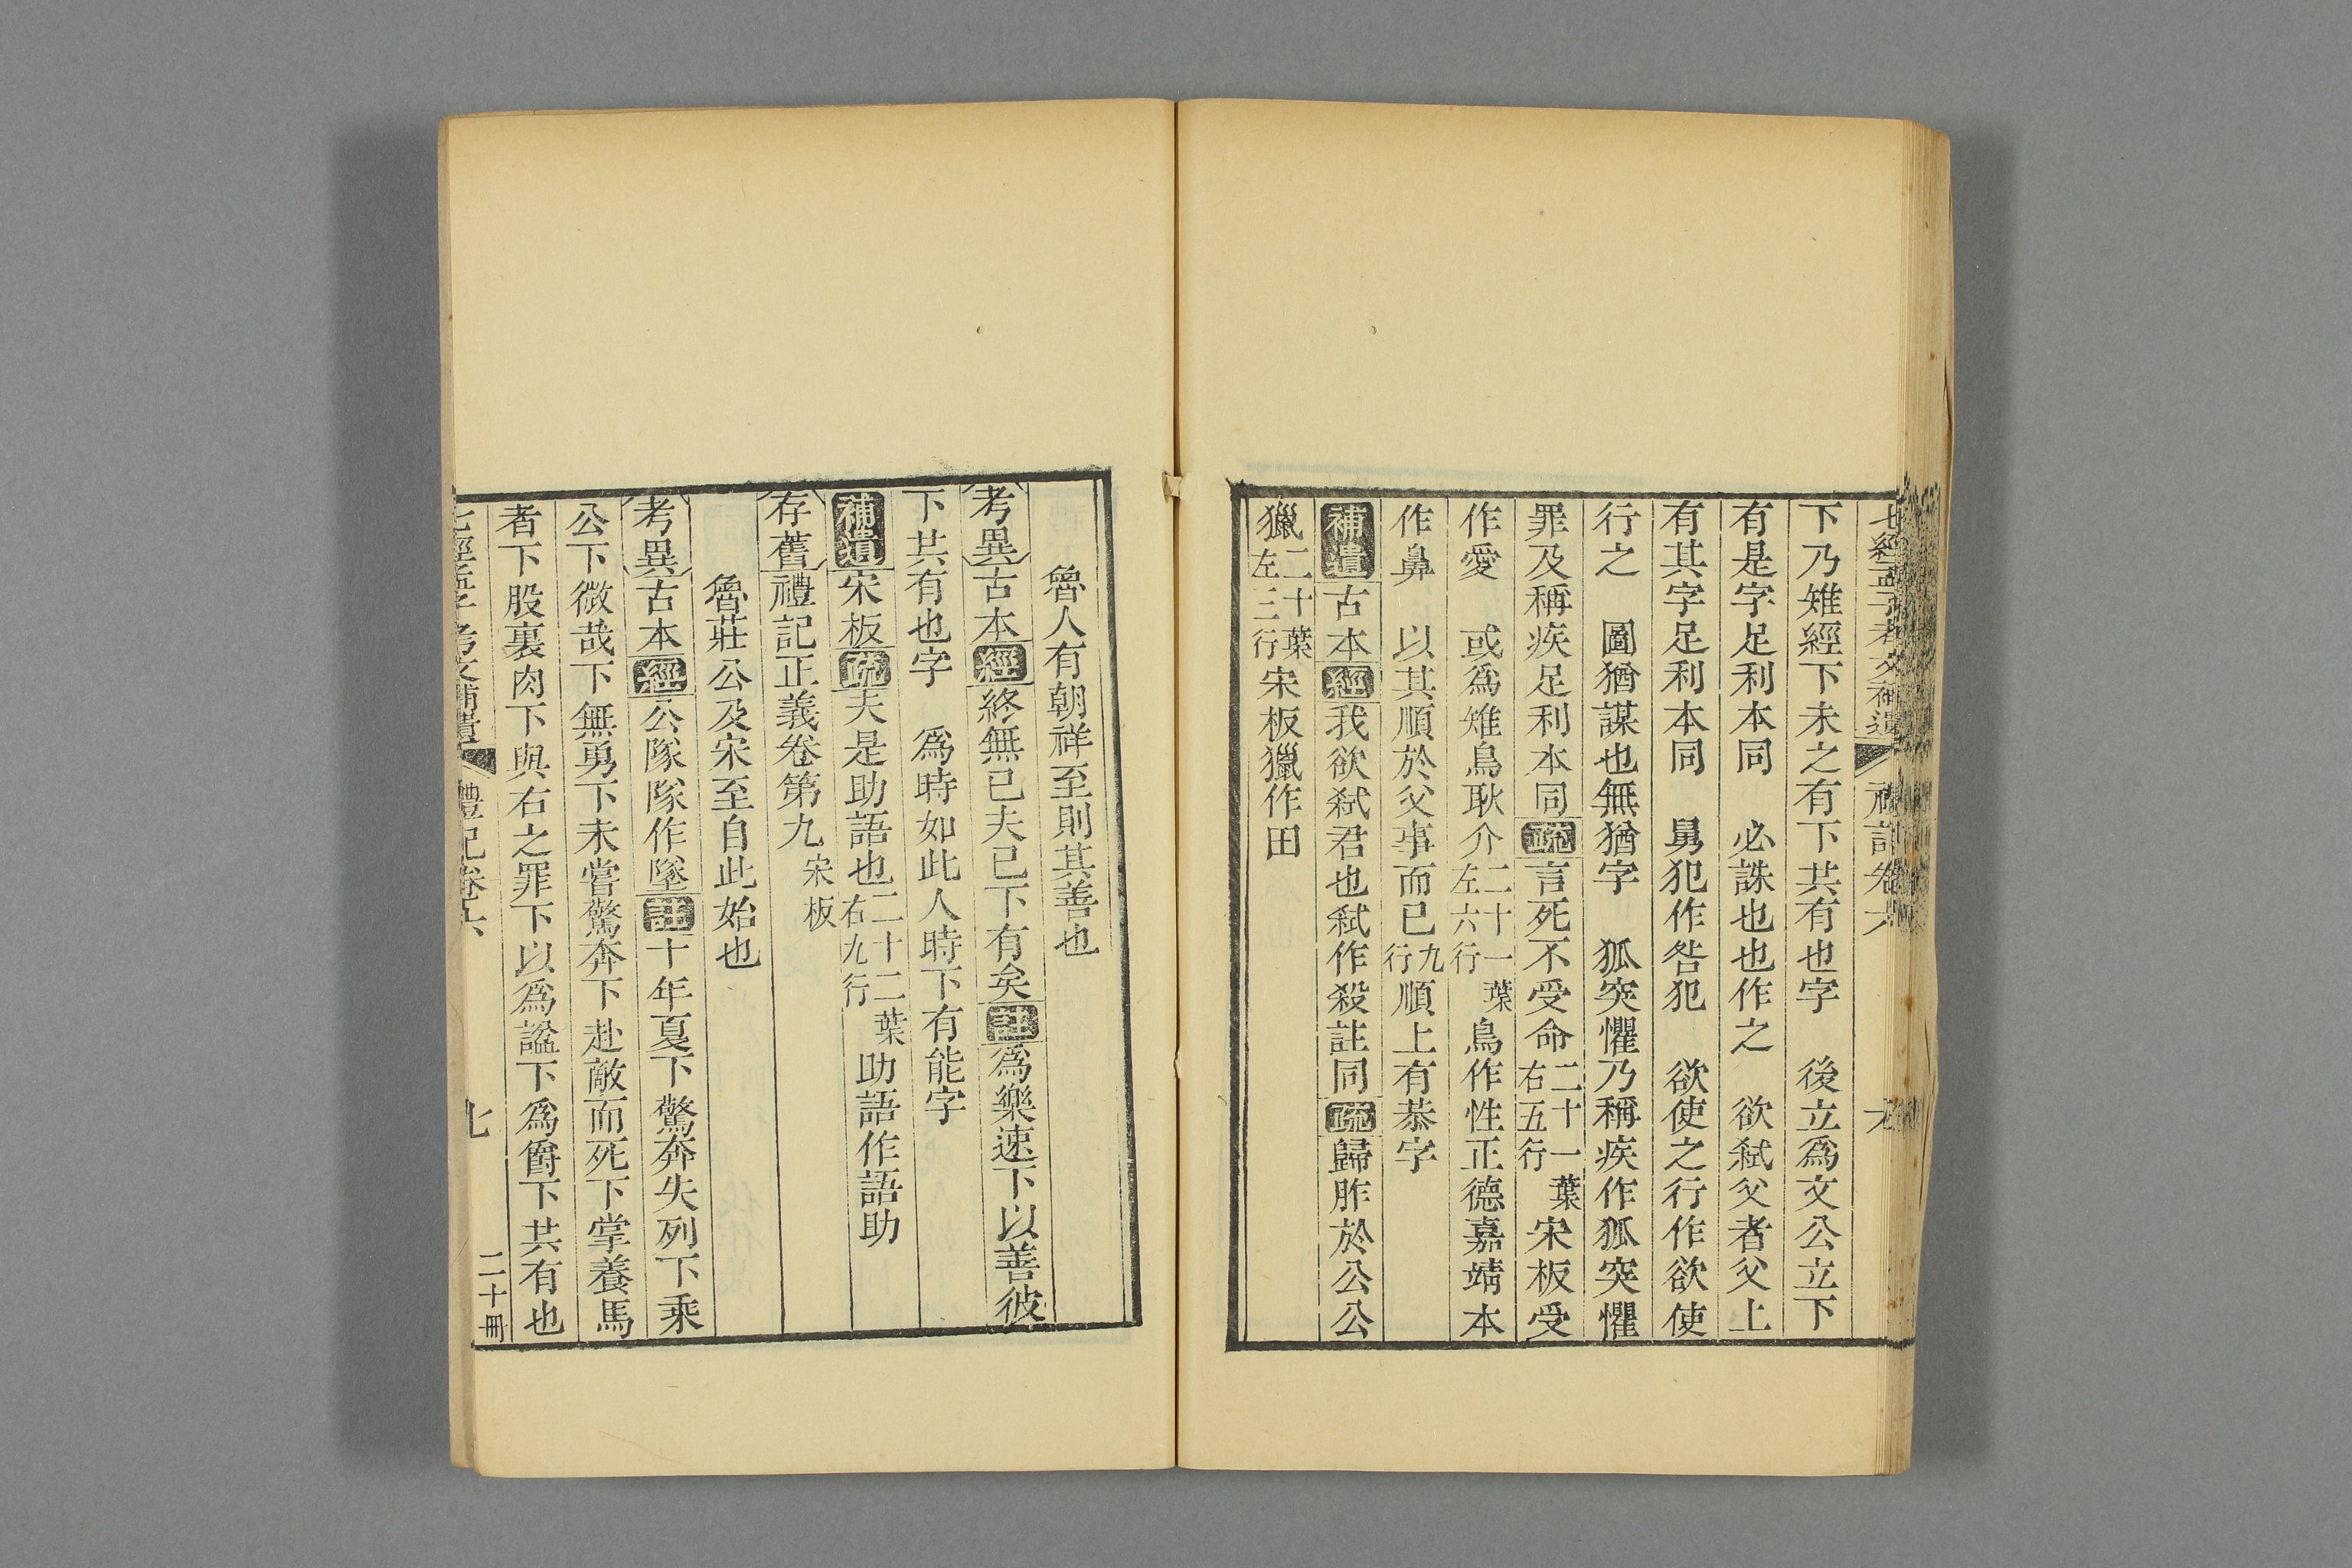 七經孟子考文補遺 禮記卷六 六
下乃雉經下未之有下共有也字　後立爲文公立下
有是字足利本同　必誅也也作之　欲弑父者父上
有其字足利本同　舅犯作咎犯　欲使之行作欲使
行之　圖猶謀也無猶字　狐突懼乃稱疾作狐突懼
罪及稱疾足利本同疏言死不受命二十一葉右五行宋板受
作愛　或爲雉鳥耿介二十一葉左六行鳥作性正德嘉靖本
作鼻　以其順於父事而已九行順上有恭字
補遺古本經我欲弑君也弑作殺註同疏歸胙於公公
獵二十葉左三行宋板獵作田
魯人有朝祥至則其善也
考異古本經終無已夫已下有矣註爲樂速下以善彼
下共有也字　爲時如此人時下有能字
補遺宋板疏夫是助語也二十二葉右九行助語作語助
存舊禮記正義卷第九宋板
魯莊公及宋至自此始也
考異古本經公隊隊作墜註十年夏下驚奔失列下乘
公下微哉下無勇下未嘗驚奔下赴敵而死下掌養馬
者下股裏肉下與右之罪下以爲謚下爲爵下共有也
七經孟子考文補遺 禮記卷六 七 二十冊